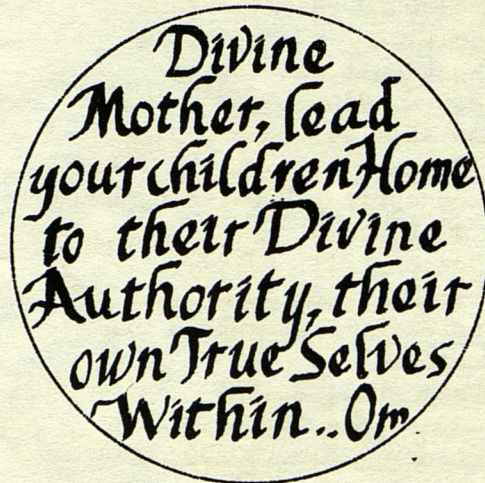 Divine
Mother, lead
your children Home
to their Divine
Authority, their
own True Selves
Within.. Om.